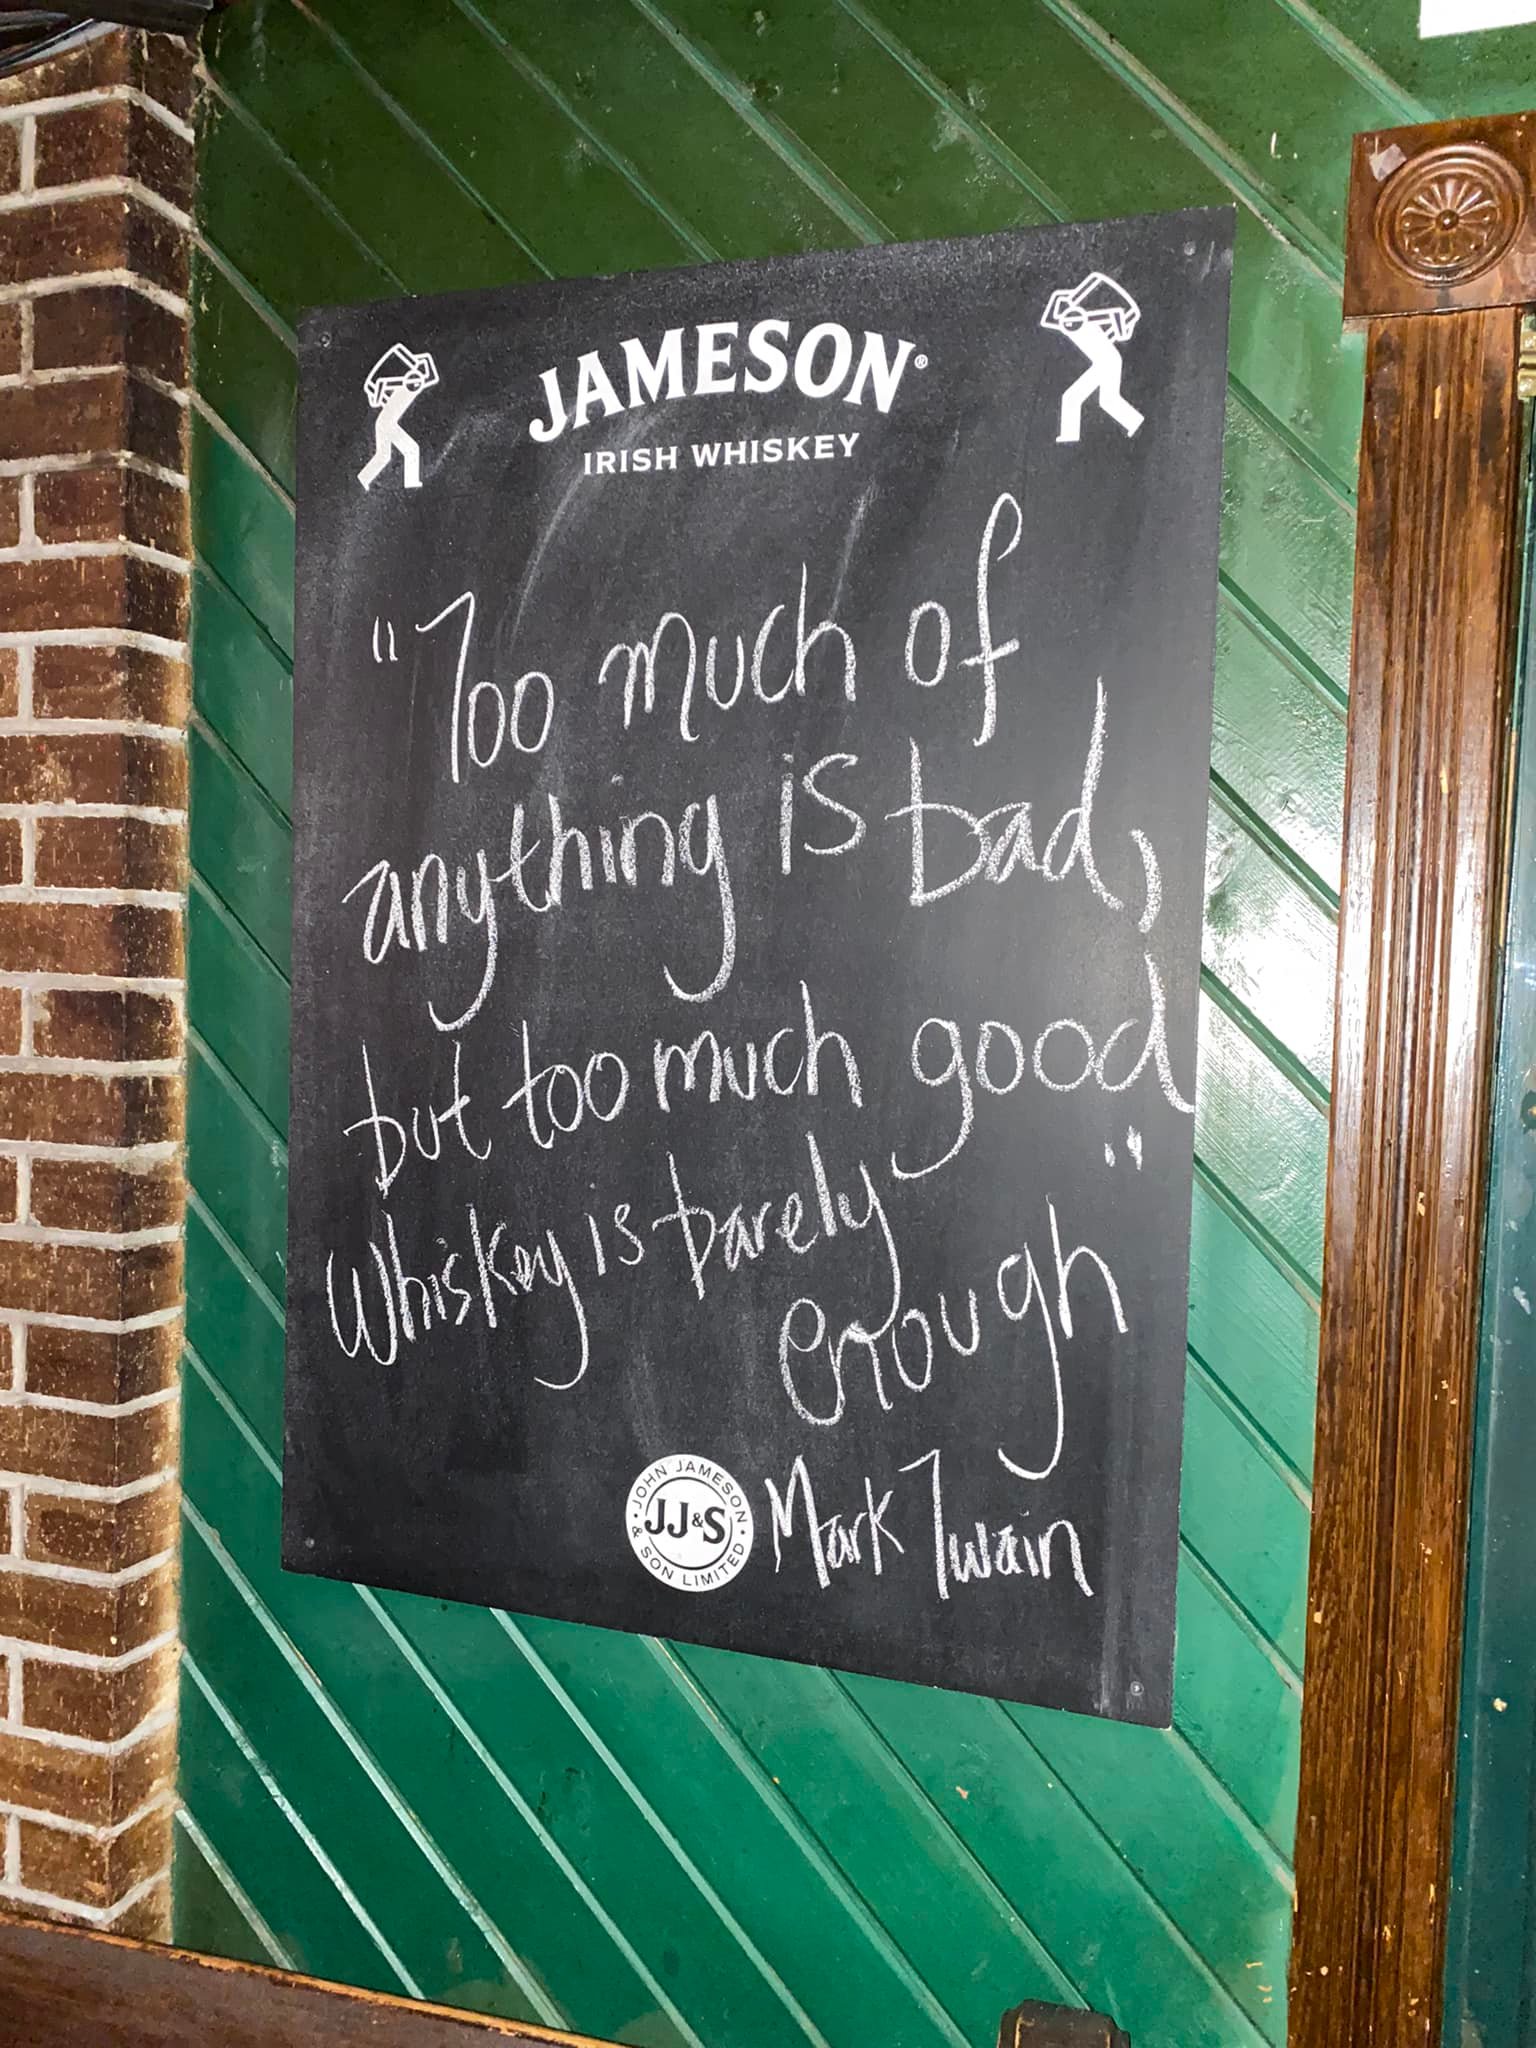 JAMESON®
IRISH WHISKEY
"Too much of
anything is bad,
but too much good
Whiskey is barely
enough"
Mark Twain
JOHN JAMESON
JJ&S
& SON LIMITED